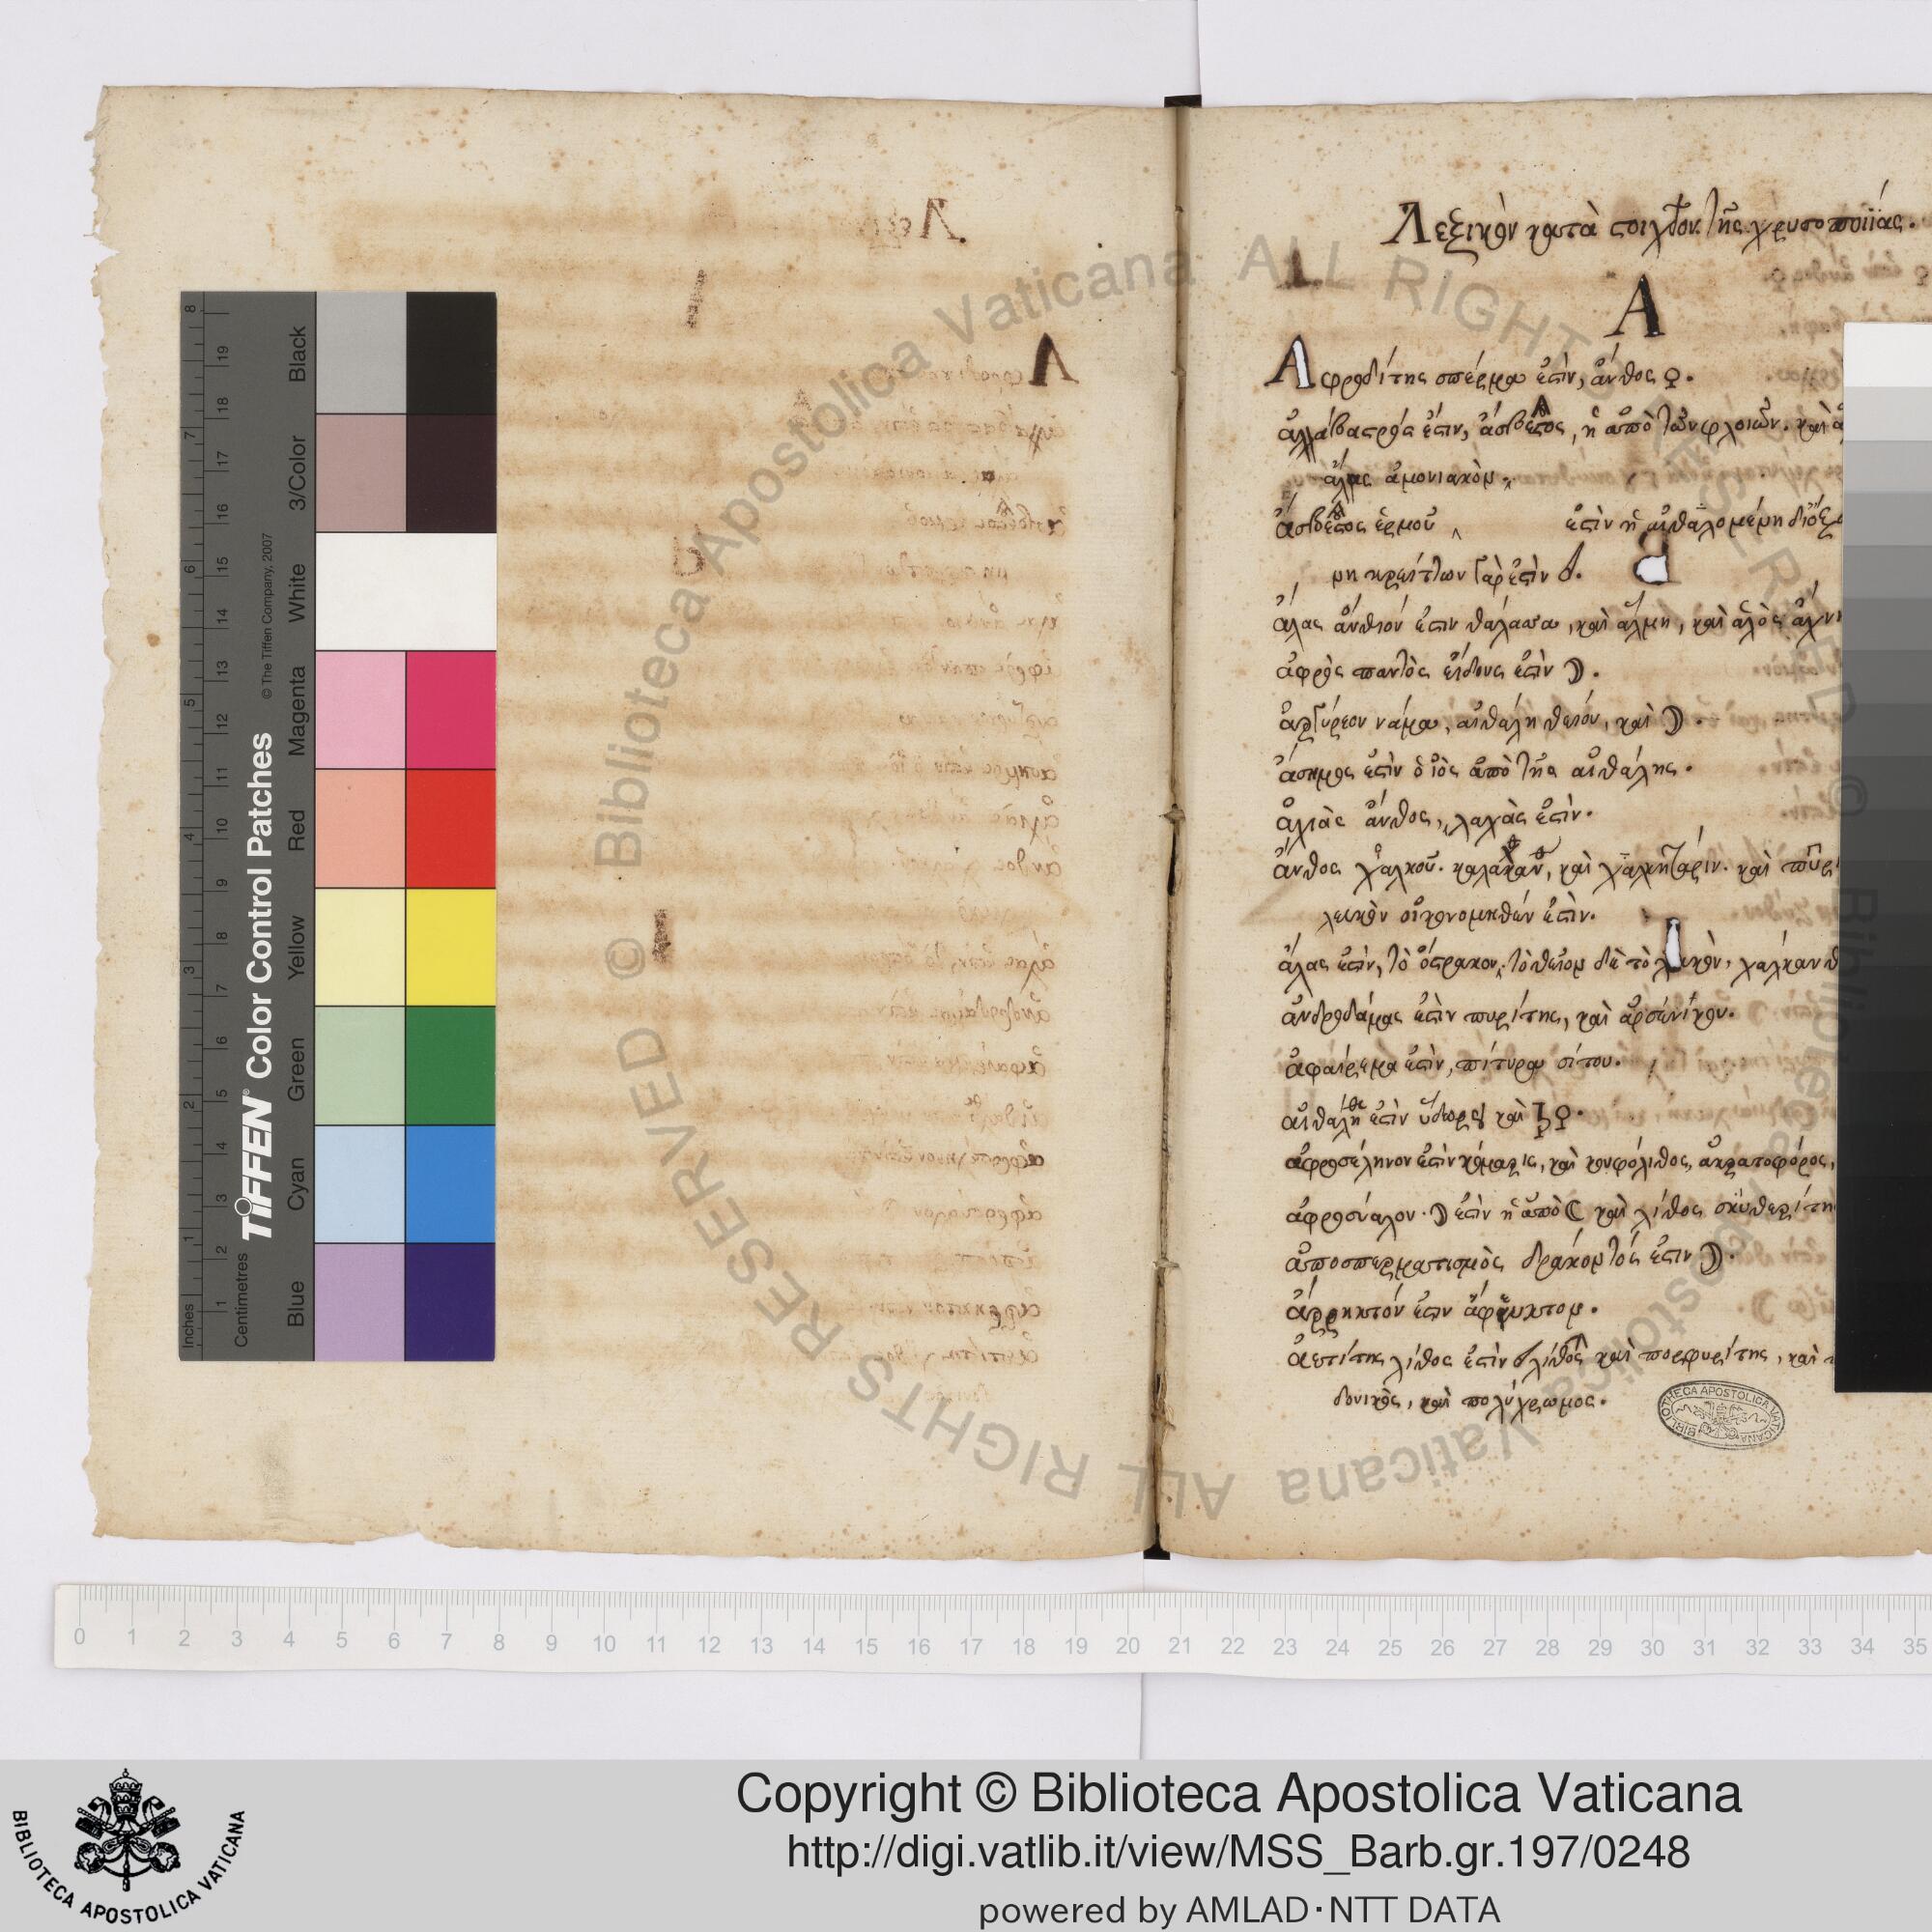 Λεξικὸν κατὰ στοιχεῖον τῆς χρυσοποιΐας.
Α
Ἀφροδίτης σπέρμα ἐστὶν, ἄνθος ♀.
ἀλλάβαστρός ἐστιν, ἄσβεστος, ἡ ἀπὸ τῶν φλοιῶν. καὶ
ἅλας ἀμονιακὸν.
ἄσβεστος ἑρμοῦ ἐστὶν ἡ αἰθαλομένη
κρείττων γὰρ ἐστὶν
ἅλας ἄνθιόν ἐστιν θάλασσα, καὶ ἅλμη, καὶ ἁλὸς
ἀφρὸς παντὸς εἴδους ἐστὶν ☽.
ἀργύρεον νάμα, αἰθάλη θείου, καὶ ☽.
ἄσημος ἐστὶν ὁ ἰὸς ἀπὸ τῆς αἰθάλης.
ἄνθος, λαχὰς ἐστὶν.
ἄνθος χαλκοῦ. καὶ χαλκητάριν. καὶ
λευκὸν οἰκονομηθὲν ἐστὶν.
ἅλας ἐστὶν, τὸ ὄστρακον, τὸ θεῖον δὲ τὸ
ἀνδροδάμας ἐστὶν πυρίτης, καὶ ἀρσένικον.
ἀφαίρεμα ἐστὶν, πίτυρα σίτου.
αἰθάλη ἐστὶν καὶ ♀.
ἀφροσέληνον ἐστὶν κόμαρις, καὶ κουφόλιθος, ἀκρατοφόρος,
ἐστὶν ἡ ἀπὸ ☾ καὶ λίθος
ἀποσπερματισμὸς δράκοντός ἐστιν ☽.
ἀρρηκτόν ἐστιν
ἀετίτης λίθος ἐστὶν καὶ πορφυρίτης, καὶ
καὶ πολύχρωμος.
BIBLIOTHECA APOSTOLICA VATICANA
© Biblioteca Apostolica Vaticana ALL RIGHTS RESERVED
© Biblioteca Apostolica Vaticana ALL RIGHTS RESERVED
TIFFEN® Color Control Patches
© The Tiffen Company, 2007
Inches 1 2 3 4 5 6 7 8
Centimetres 1 2 3 4 5 6 7 8 9 10 11 12 13 14 15 16 17 18 19
Blue Cyan Green Yellow Red Magenta White 3/Color Black
0 1 2 3 4 5 6 7 8 9 10 11 12 13 14 15 16 17 18 19 20 21 22 23 24 25 26 27 28 29 30 31 32 33 34 35
BIBLIOTECA APOSTOLICA VATICANA
Copyright © Biblioteca Apostolica Vaticana
http://digi.vatlib.it/view/MSS_Barb.gr.197/0248
powered by AMLAD·NTT DATA